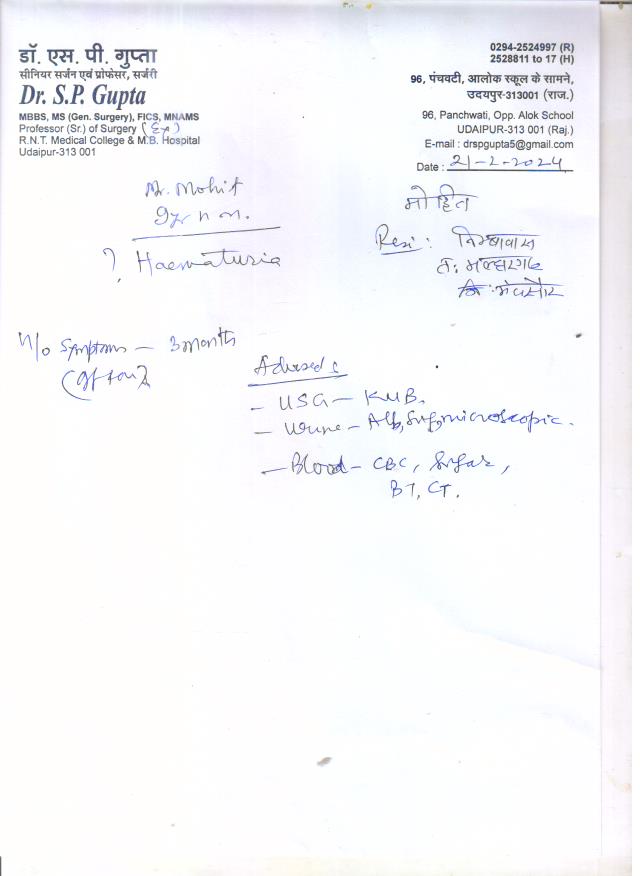 डॉ. एस. पी. गुप्ता
सीनियर सर्जन एवं प्रोफेसर, सर्जरी
Dr. S.P. Gupta
MBBS, MS (Gen. Surgery), FICS, MNAMS
Professor (Sr.) of Surgery (Ex)
R.N.T. Medical College & M.B. Hospital
Udaipur-313 001
0294-2524997 (R)
2528811 to 17 (H)
96, पंचवटी, आलोक स्कूल के सामने,
उदयपुर-313001 (राज.)
96, Panchwati, Opp. Alok School
UDAIPUR-313 001 (Raj.)
E-mail : drspgupta5@gmail.com
Date : 21-2-2024
Mr. Mohit
मोहित
? Haematuria
Resi :
त. मल्हारगढ
जि : मंदसौर
H/o Symptoms - 3 months
Advised :
- USG - KUB.
- Urine - Alb, Sug, microscopic.
- Blood - CBC, Sugar,
BT, CT.